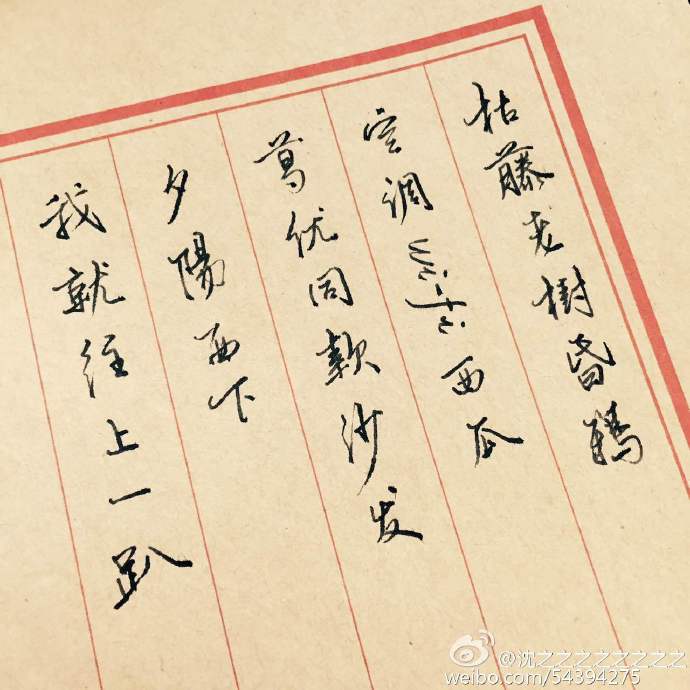 枯藤老樹昏鴉
空调wifi西瓜
葛优同款沙发
夕陽西下
我就往上一趴
@沈之之之之之之之之
weibo.com/54394275